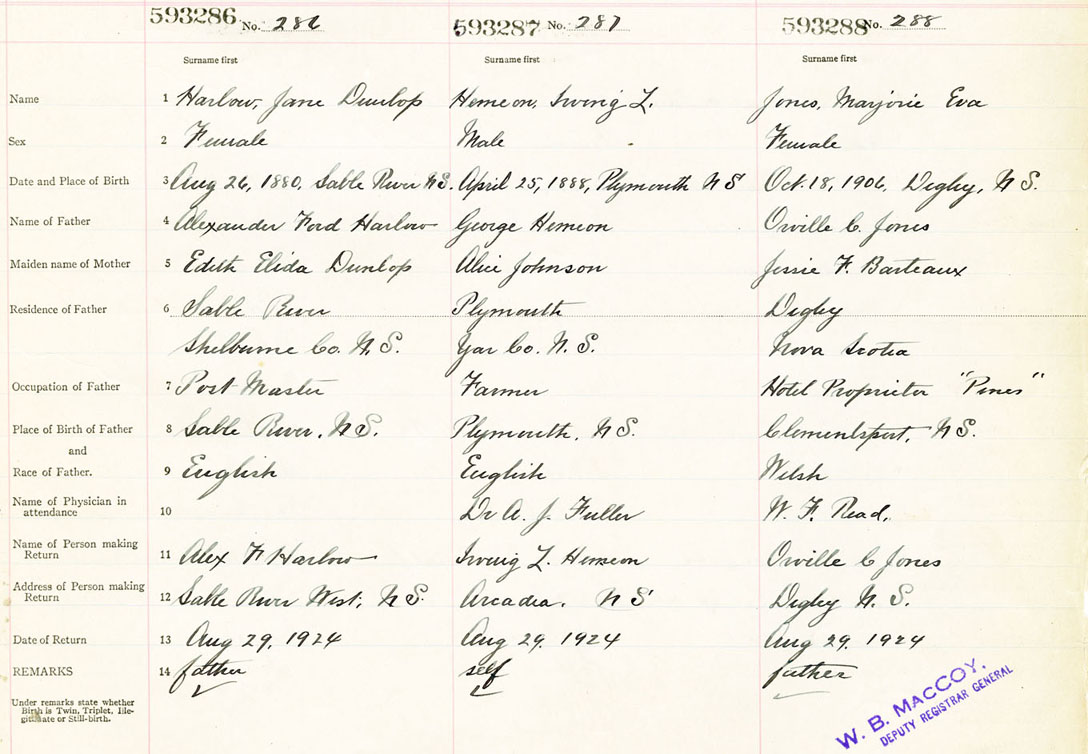 593286 No. 286 593287 No. 287 593288 No. 288
Surname first Surname first Surname first
Name 1 Harlow, Jane Dunlop Hemeon, Irving L. Jones, Marjorie Eva
Sex 2 Female Male Female
Date and Place of Birth 3 Aug 26, 1880, Sable River N.S. April 25, 1888, Plymouth N S Oct. 18, 1906, Digby, N S.
Name of Father 4 Alexander Ford Harlow George Hemeon Orville C. Jones
Maiden name of Mother 5 Edith Elida Dunlop Alice Johnson Jessie F. Barteaux
Residence of Father 6 Sable River Plymouth Digby
Shelburne Co. N. S. Yar Co. N. S. Nova Scotia
Occupation of Father 7 Post Master Farmer Hotel Proprietor "Pines"
Place of Birth of Father 8 Sable River, N S. Plymouth, N S. Clementsport, N S.
and
Race of Father. 9 English English Welsh
Name of Physician in
attendance 10 Dr A. J. Fuller W. F. Read,
Name of Person making
Return 11 Alex F Harlow Irving L. Hemeon Orville C Jones
Address of Person making
Return 12 Sable River West, N S. Arcadia. N S Digby N. S.
Date of Return 13 Aug 29, 1924 Aug 29, 1924 Aug 29, 1924
REMARKS 14 father self father
Under remarks state whether
Birth is Twin, Triplet, Ille-
gitimate or Still-birth.
W. B. MACCOY.
DEPUTY REGISTRAR GENERAL